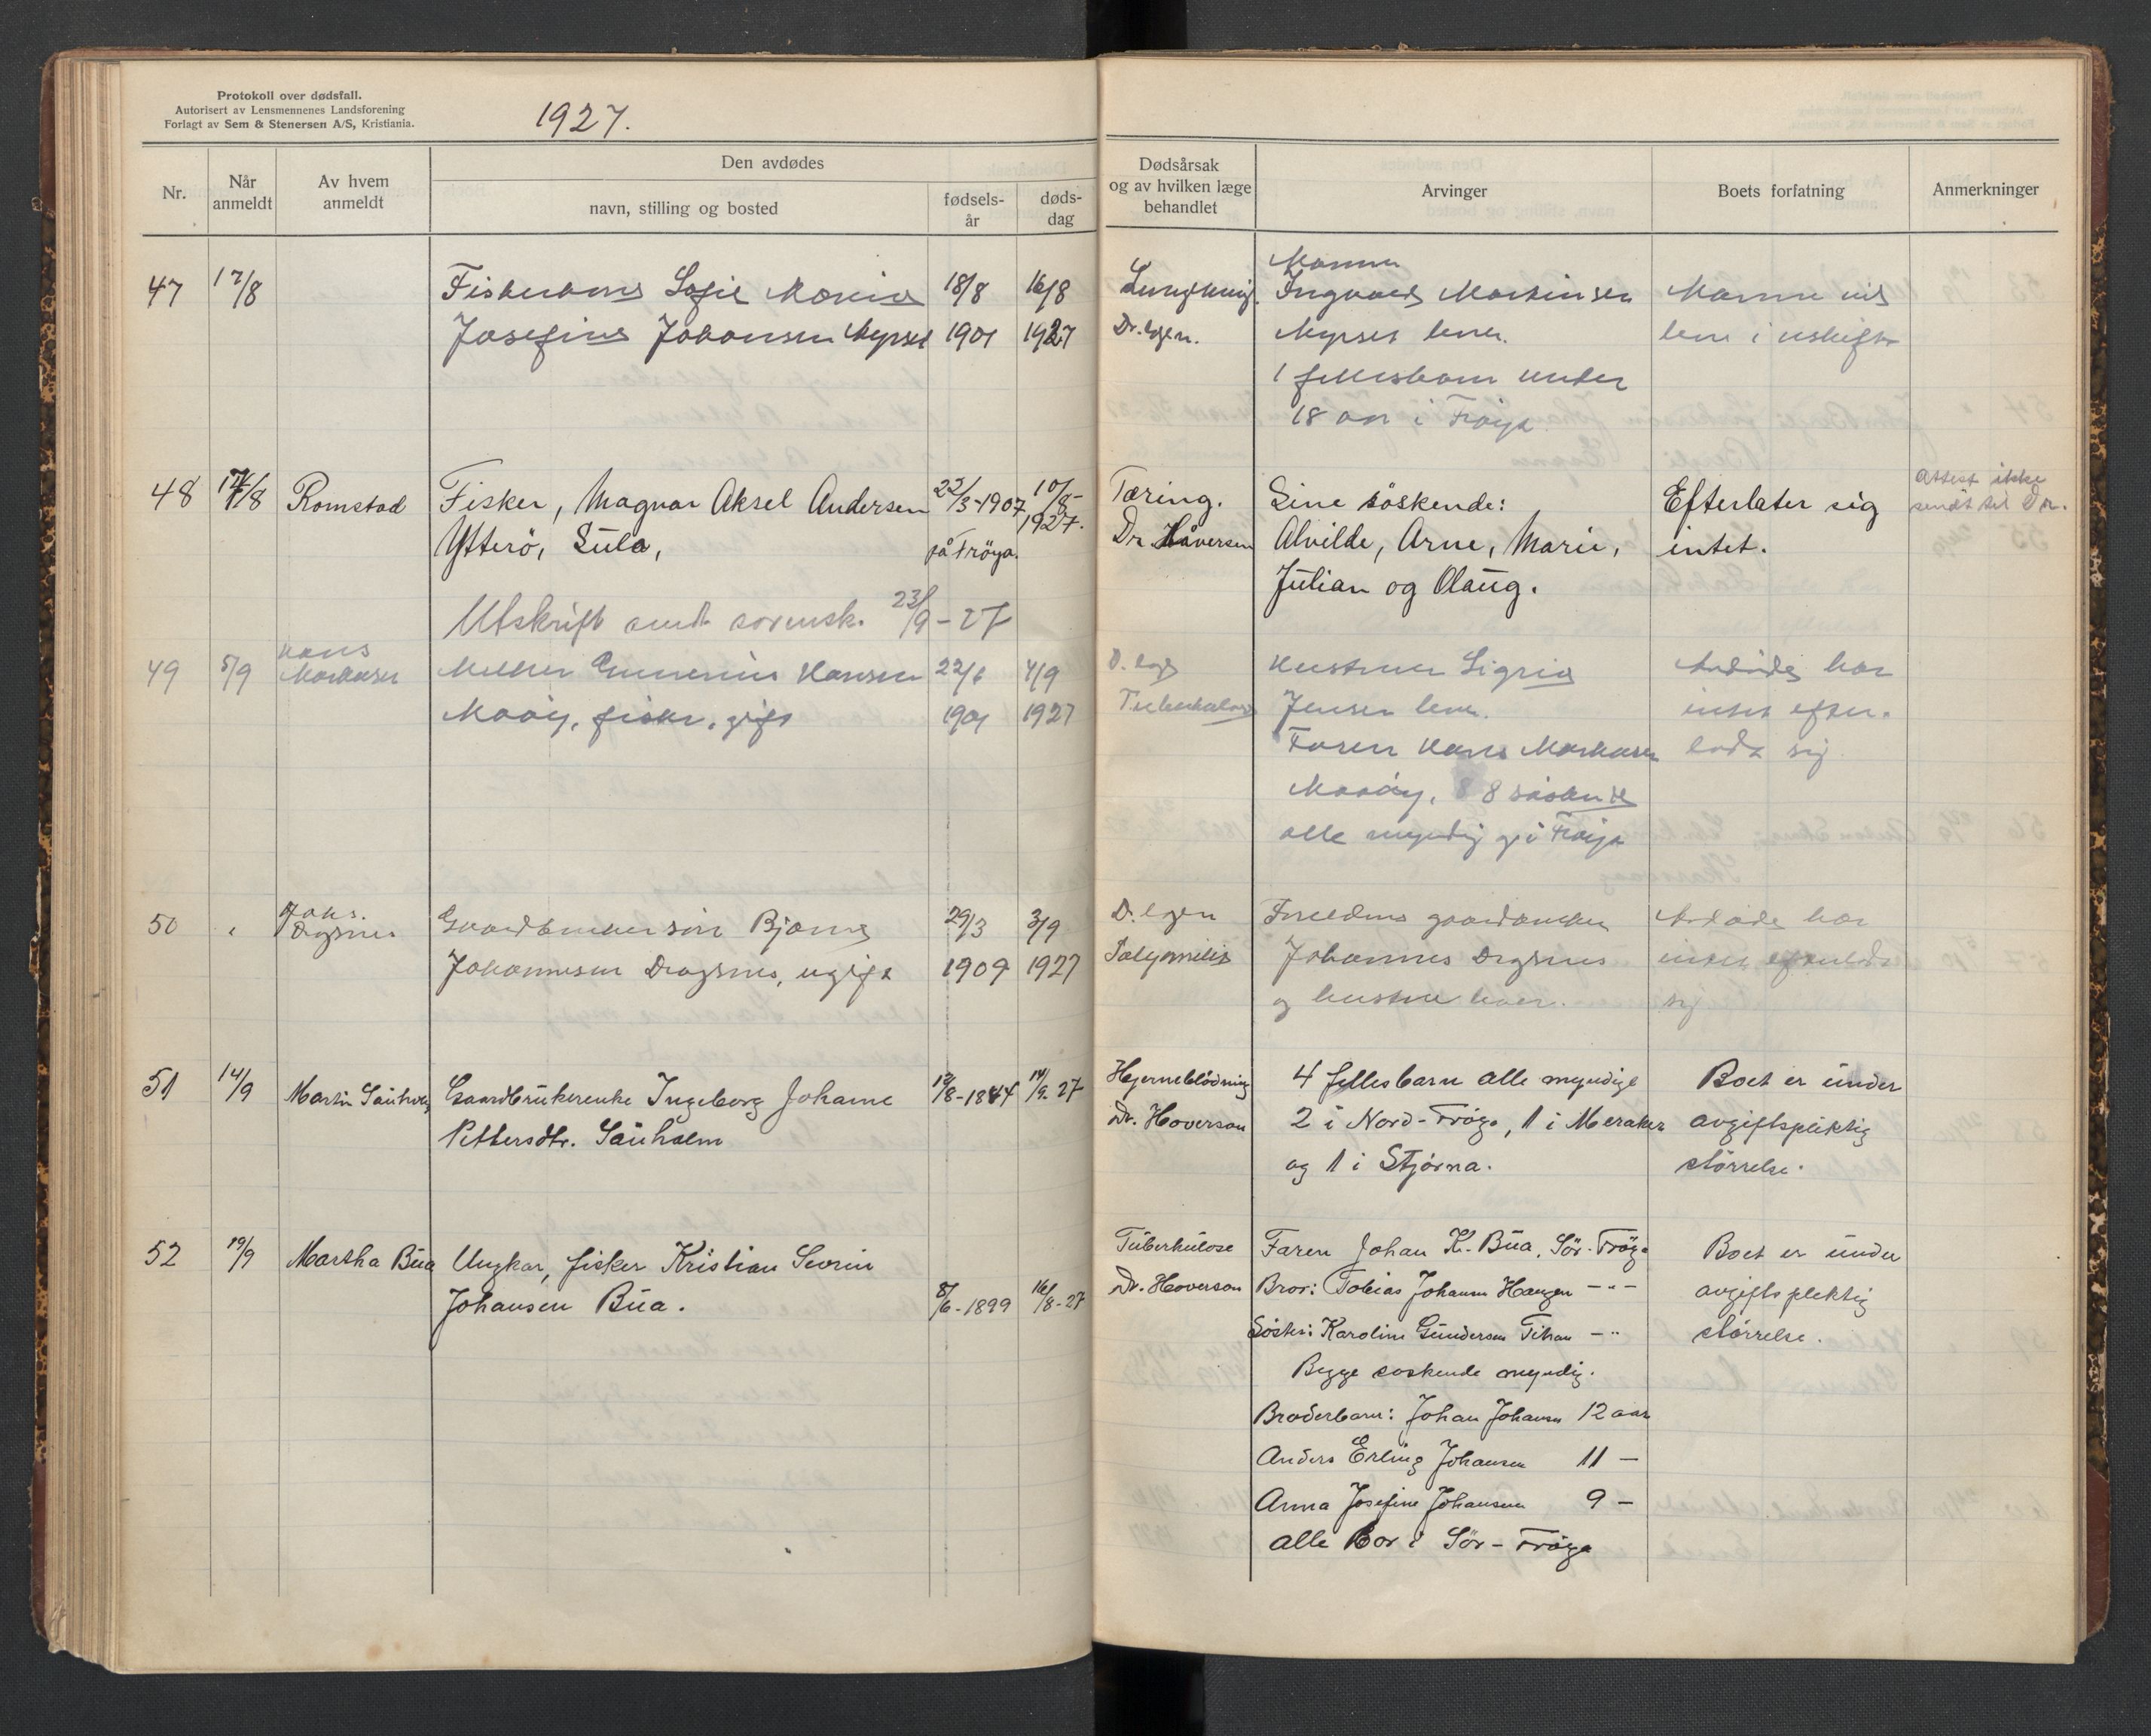 Protokoll over dødsfall.
Autorisert av Lensmennenes Landsforening
Forlagt av Sem & Stenersen A/S, Kristiania.
1927.
Nr.
Når anmeldt
Av hvem anmeldt
Den avdødes
navn, stilling og bosted
fødsels-år
døds-dag
Dødsårsak
og av hvilken læge
behandlet
Arvinger
Boets forfatning
Anmerkninger
47 17/8 Sofie 18/8 16/8
Josefine Johansen 1901 1927
Manne
Ingvald Martinsen
lever.
1 fellesbarn under
18 aar i Frøya
Manne vil
leve i uskifte
48 17/8 Romstad Fisker, Magnar Aksel Andersen 22/3-1907 10/8-1927.
Ytterö, Sula, på Fröya.
Utskrift sendt sorensk. 23/9-27
Tæring.
Dr. Håversen
Sine söskende:
Alvilde, Arne, Marie,
Julian og Olaug.
Efterlater sig
intet.
Attest ikke
sendt til Dr.
49 5/9 Hans Markusen Gunerius Hansen 22/6 4/9
Maaöy, fisker, gift 1901 1927
Tuberkulose
Hustruen Sigrid
Jensen lever.
Faren Hans Markusen
Maaöy, 8 söskende
alle myndig og i Fröya
Avdöde har
intet efter-
latt sig
50 " Johs. Dragsnes Gaardbrukersön Bjarne 29/3 3/9
Johannesen Dragsnes, ugift 1909 1927
Foreldrene gaardbruker
Johannes Dragsnes
og hustru lever.
Avdöde har
intet efterlatt
sig
51 14/9 Martin Sauholm Gaardbrukerenke Ingeborg Johanne /8-1844 14/9-27
Pettersdtr. Sauholm
Hjerneblödning
Dr. Hoverson
4 fellesbarn alle myndige
2 i Nord-Fröya, 1 i Meraker
og 1 i Stjörna.
Boet er under
avgiftspliktig
störrelse.
52 19/9 Martha Bua Ungkar, fisker Kristian Sevrin
Johansen Bua. 8/6-1899 16/8-27
Tuberkulose
Dr. Hoverson
Faren Johan K. Bua, Sör-Fröya
Bror: Tobias Johansen Haugen -"-
Söster: Karoline Gundersen Titran -"-
Begge söskende myndig.
Broderbarn: Johan Johansen 12 aar
Anders Erling Johansen 11 -
Anna Josefine Johansen 9 -
Alle Bor i Sör-Fröya
Boet er under
avgiftspliktig
störrelse.